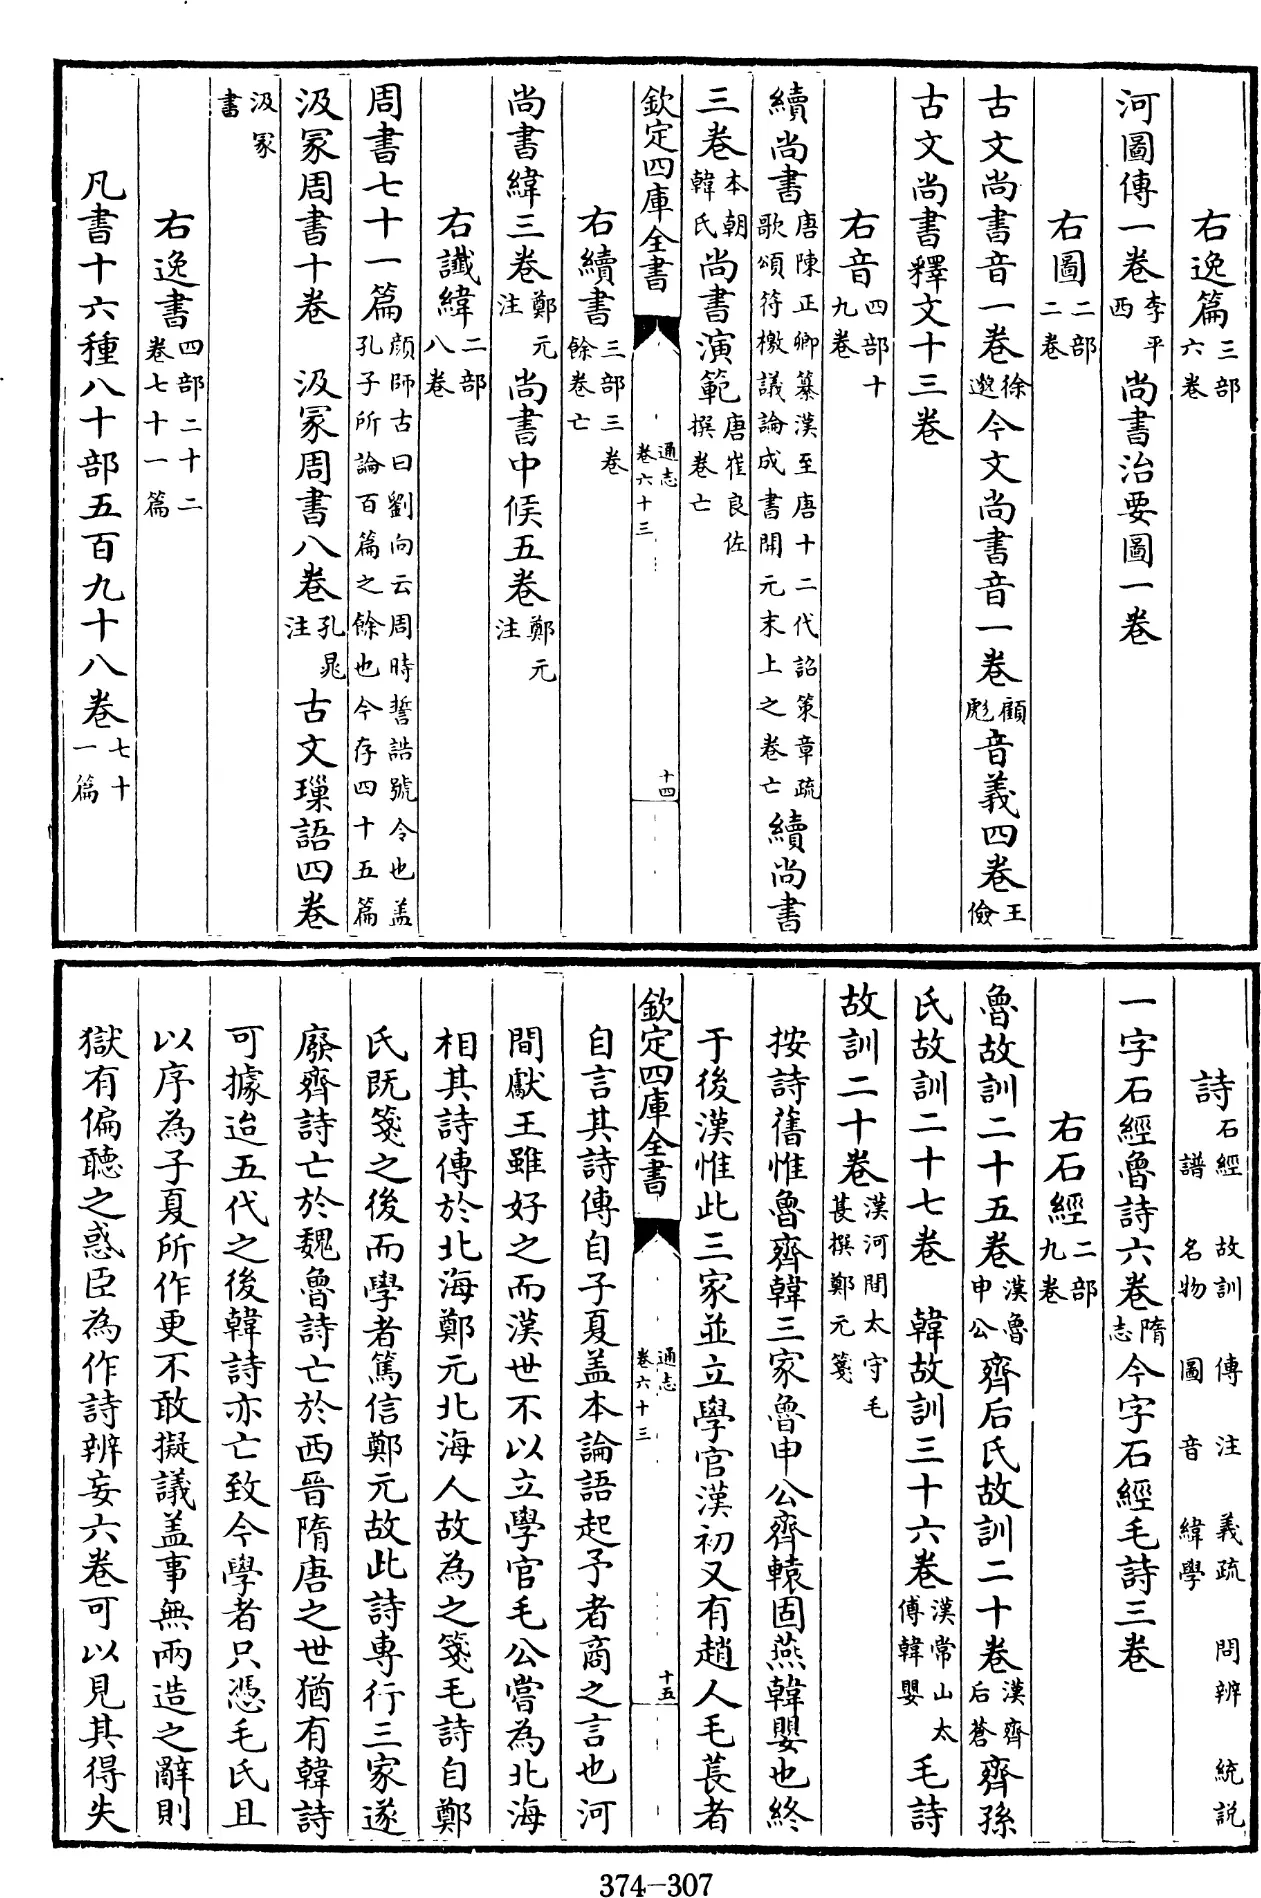 右逸篇三部六卷
河圖傳一卷李平西 尚書治要圖一卷
右圖二部二卷
古文尚書音一卷徐邈今文尚書音一卷顧彪音義四卷王儉
古文尚書釋文十三卷
右音四部十九卷
續尚書唐陳正卿纂漢至唐十二代詔策章疏歌頌符檄議論成書開元末上之卷亡續尚書
三卷本朝韓氏尚書演範唐崔良佐撰卷亡
欽定四庫全書 通志卷六十三 十四
右續書三部三卷餘卷亡
尚書緯三卷鄭元注尚書中候五卷鄭元注
右讖緯二部八卷
周書七十一篇顔師古曰劉向云周時誓誥號令也盖孔子所論百篇之餘也今存四十五篇
汲冢周書十卷 汲冢周書八卷孔晁注古文璅語四卷
汲冢書
右逸書四部二十二卷七十一篇
凡書十六種八十部五百九十八卷七十一篇
詩石經 故訓 傳 注 義疏 問辨 統説 譜 名物 圖 音 緯學
一字石經魯詩六卷隋志今字石經毛詩三卷
右石經二部九卷
魯故訓二十五卷漢魯申公齊后氏故訓二十卷漢齊后蒼齊孫
氏故訓二十七卷 韓故訓三十六卷漢常山太傅韓嬰毛詩
故訓二十卷漢河間太守毛萇撰鄭元箋
按詩舊惟魯齊韓三家魯申公齊轅固燕韓嬰也終
于後漢惟此三家並立學官漢初又有趙人毛萇者
欽定四庫全書 通志卷六十三 十五
自言其詩傳自子夏盖本論語起予者商之言也河
間獻王雖好之而漢世不以立學官毛公嘗為北海
相其詩傳於北海鄭元北海人故為之箋毛詩自鄭
氏既箋之後而學者篤信鄭元故此詩専行三家遂
廢齊詩亡於魏魯詩亡於西晉隋唐之世猶有韓詩
可據迨五代之後韓詩亦亡致今學者只憑毛氏且
以序為子夏所作更不敢擬議盖事無兩造之辭則
獄有偏聽之惑臣為作詩辨妄六卷可以見其得失
374-307